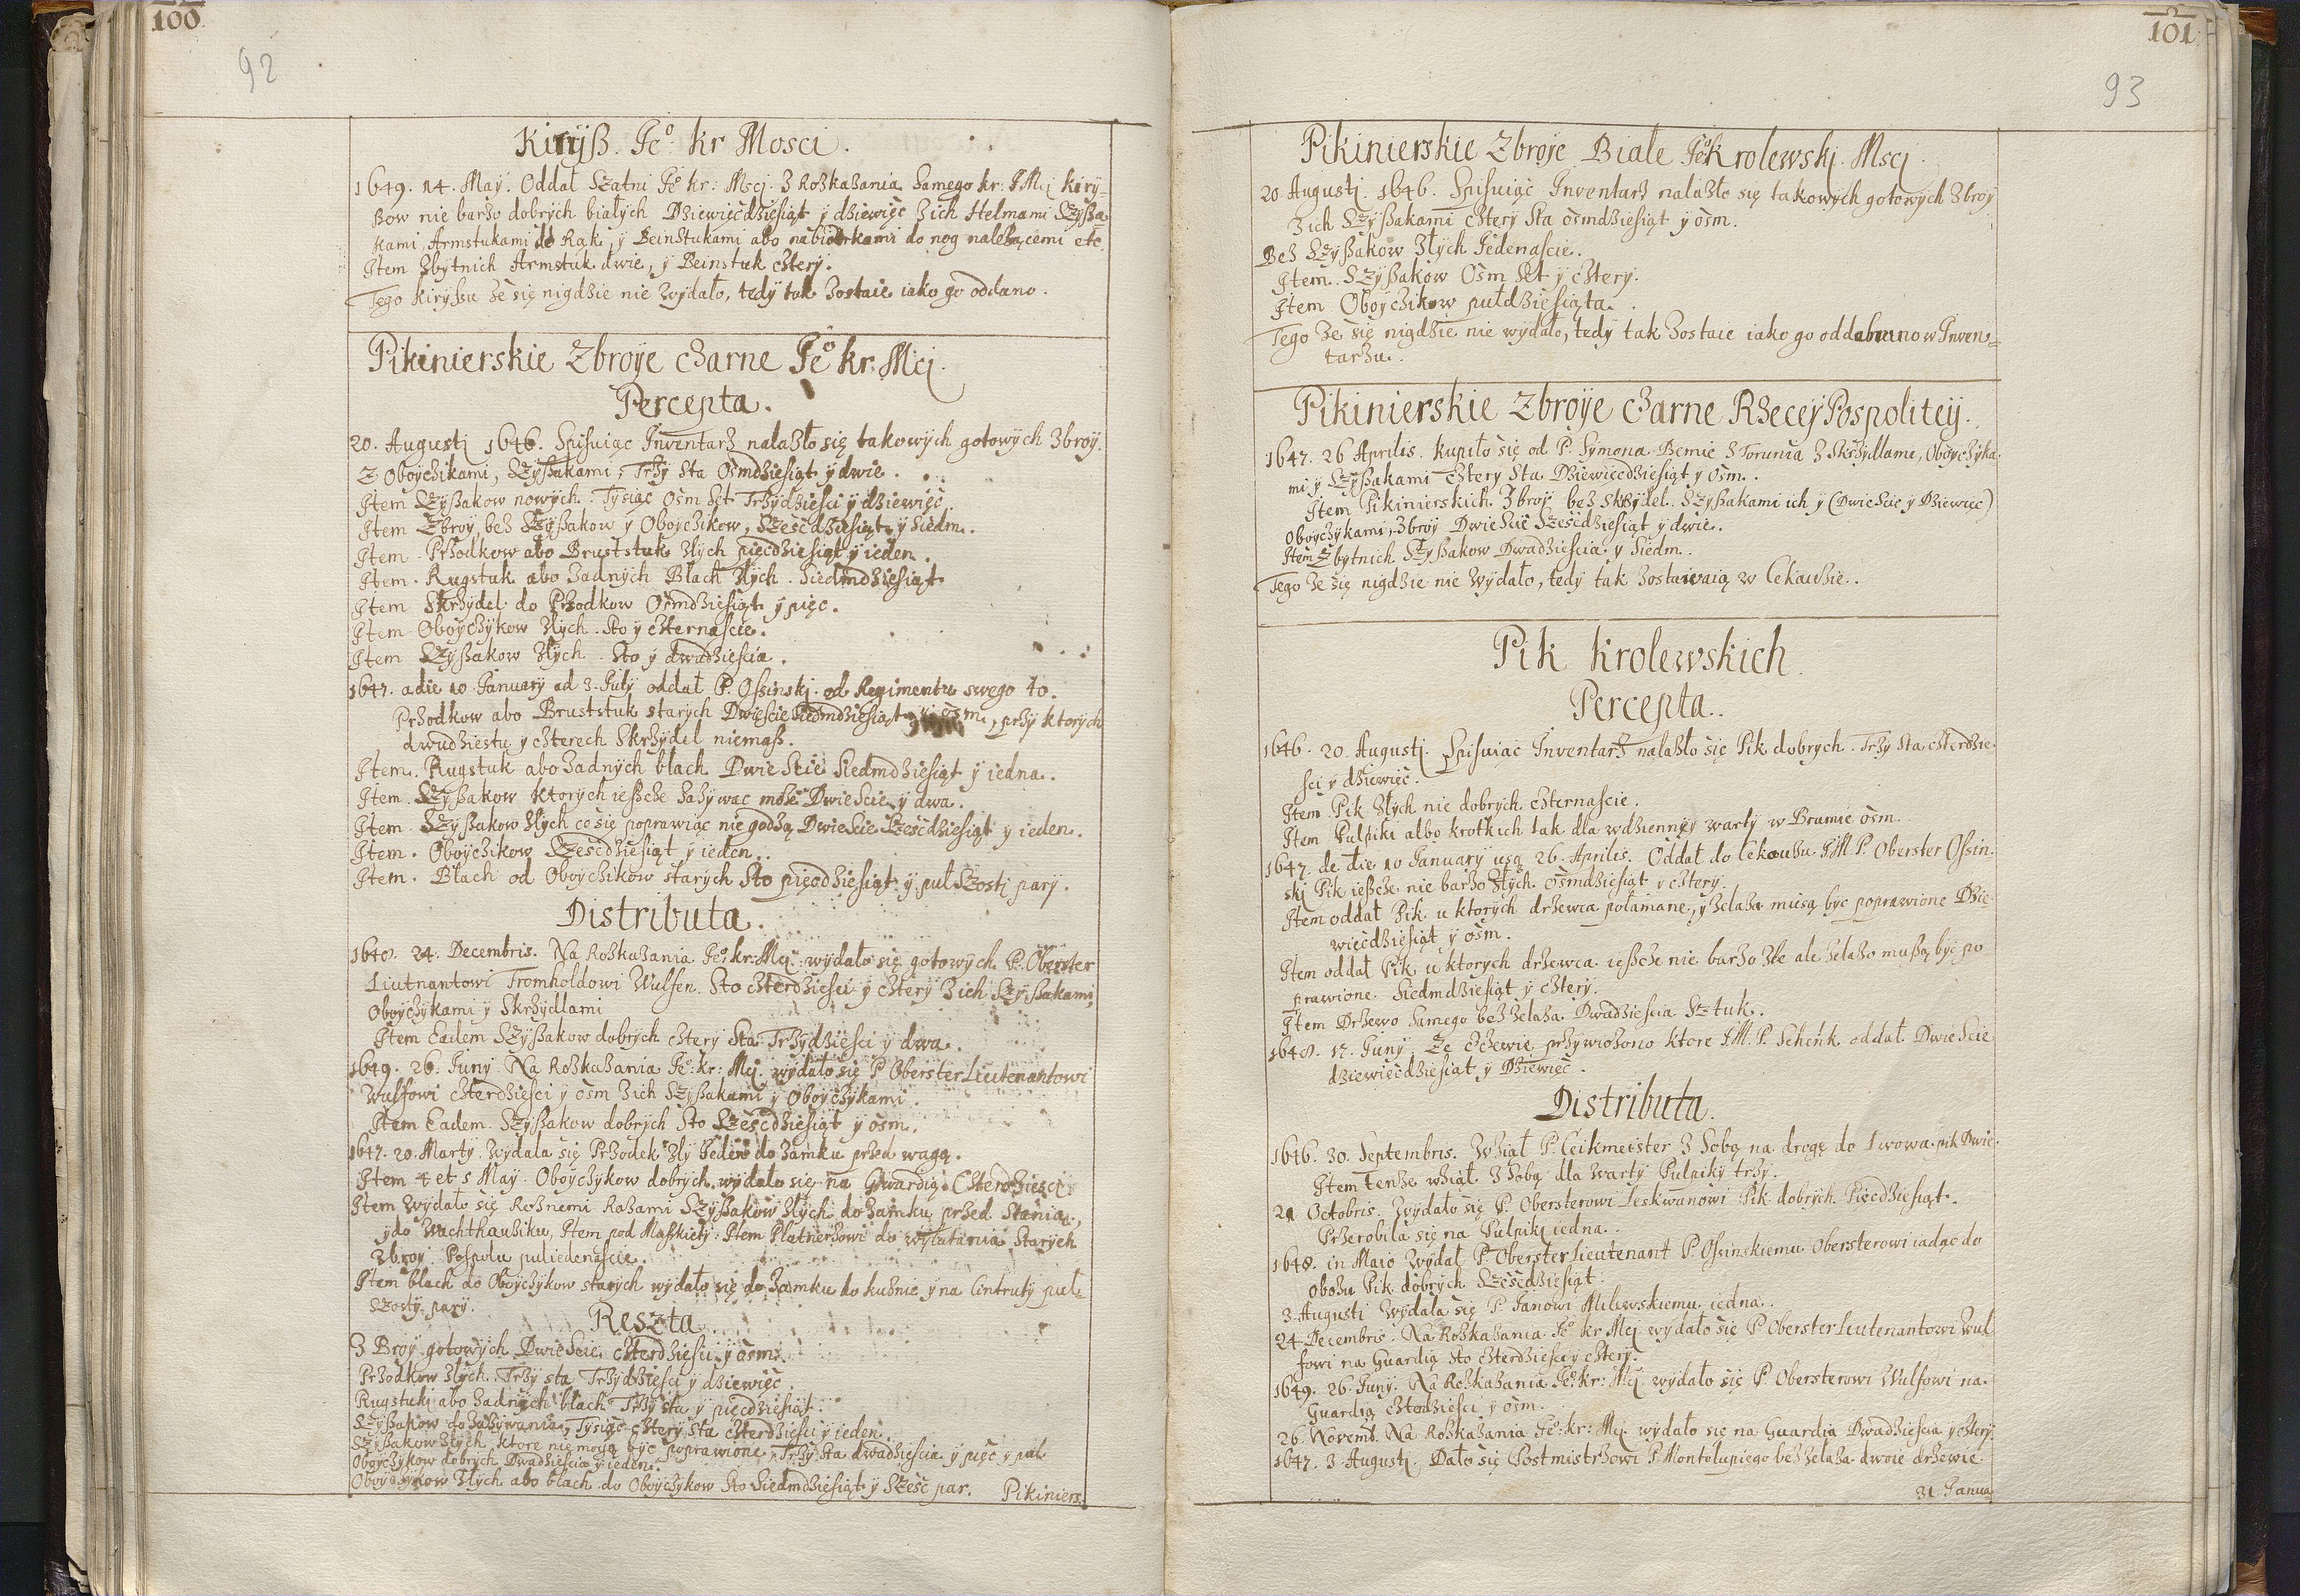 100
92
Kiryß. Je͠o kr Mosci.
1649. 14. May. Oddał Szatni Je͠o kr: Mscj. Z Roskazania Samego kr: J Mcj Kiry-
szow nie barzo dobrych białych Dziewięcdziesiąt y dziewięc z ich Helmami Szyßa
kami, Armstukami do Rąk, y Beinstukami abo nabiodrkami do nog nalezącemi etc.
Item Zbytnich Armstuk dwie, y Beinstuk cztery.
Tego kiryßu ze się nigdzie nie wydało, tedy tak zostaie iako go oddano.
Pikinierskie Zbroye czarne Je͠o kr: Mcj.
Percepta.
20. Augustj 1646. Spisuiąc Inventarz nalazło się takowych gotowych Zbroy.
Z Oboyczikami, Szyßakami, Trzy sta Osmdziesiąt y dwie.
Item Szyßakow nowych. Tysiąc osm set Trzydziesci y dziewięc.
Item Zbroy, bez Szyßakow y Oboyczikow, Szescdziesiąt y Siedm.
Item. Przodkow abo Bruststuk złych pięcdziesiąt y ieden.
Item. Rugstuk abo Zadnych Blach złych. Siedmdziesiąt
Item Skrzydel do Przodkow Osmdziesiąt y pięc.
Item Oboyczykow złych. Sto y czternascie.
Item Szyßakow złych. Sto y dwadziescia.
1647. a die 10 January ad 3. July oddał P. Ossinskj. od Regimentu swego to.
Przodkow abo Bruststuk starych Dwiescie Siedmdziesiąt y osm, przy ktorych
dwudziestu y czterech Skrzydel niemaß.
Item. Rugstuk abo Zadnych blach Dwie Scie Siedmdziesiąt y iedna.
Item. Szyßakow ktorych ießcze zazywac moze Dwie Scie y dwa.
Item. Szyßakow złych co się poprawiąc nie godzą Dwie Scie Szescdziesiąt y ieden.
Item. Oboyczikow Szescdziesiąt y ieden.
Item. Blach od Oboyczikow starych Sto pięcdziesiąt y puł Szostj pary.
Distributa.
1648. 24. Decembris. Na Roskazania Je͠o kr: Mcj: wydało się gotowych P. Oberster
Liutnantowi Fromholdowi Wulfen. Sto czterdziesci y cztery z ich Szyßakami,
Oboyczykami y Skrzydlami
Item Eadem Szyßakow dobrych cztery Sta Trzydziesci y dwa.
1649. 26. Juny Na Roskazania Je͠o: kr: Mcj. wydało się P Oberster Lieutenantowi
Wulfowi czterdziesci y osm z ich Szyßakami y Oboyczykami
Item Eadem. Szyßakow dobrych Sto Szescdziesiąt y osm.
1647. 20. Marty. Wydala się Przodek zły ieden do Zamku przed wagą.
Item 4 et 5 May. Oboyczykow dobrych wydało się na Gwardią. Czterdziesci
Item Wydało się Roznemi Razami Szyßakow złych do Zamku przed Stanią,
y do Wachthauziku, Item pod Maszkiety. Item Platnerzowi do wylatania Starych
Zbroy. Pospolu pul iedenascie.
Item blach do Oboyczykow starych wydało się do Zamku do kuźnie y na Centruty puł
Szosty pary.
Reszta
Z Broy gotowych Dwie Scie, czterdziesci y osm.
Przodkow złych. Trzy sta Trzydziesci y dziewięc
Rugstukj abo Zadnych blach Trzy sta y pięcdziesiąt.
Szyßakow do zazywania, Tysiąc cztery sta czterdziesci y ieden.
Szyßakow złych ktore nie mogą byc poprawione, Trzy sta dwadziescia y pięc y pul
Oboyczykow dobrych Dwadziescia y ieden.
Oboyczykow złych abo blach do Oboyczykow Sto Siedmdziesiąt y Szesc par. Pikiniers:
101
93
Pikinierskie Zbroje Biale Je͠o Krolewskj. Mscj.
20. Augustj. 1646. Spisuiąc Inventarz nalazło się takowych gotowych Zbroy
z ich Szyßakami cztery Sta osmdziesiąt y osm.
Bez Szyßakow złych Jedenascie.
Item. Szyßakow Osm set y cztery.
Item Oboyczikow pułdziesiąta.
Tego ze się nigdzie nie wydało, tedy tak zostaie iako go oddebrano w Inven-
tarzu.
Pikinierskie Zbroye czarne Rzecey Pospolitey.
1647. 26 Aprilis. Kupiło się od P. Symona Bemie z Torunia z Skrzydlami, Oboyczyka
mi y Szyßakami cztery Sta Dziewięcdziesiąt y osm.
Item Pikinierskich. Zbroy bez Skrzydel. Szyßakami ich y (Dwie Scie y Dziewięc)
Oboyczykami, Zbroy Dwie Scie Szescdziesiąt y dwie.
Item Zbytnich Szyßakow Dwadziescia y Siedm.
Tego ze się nigdzie nie wydało, tedy tak zostaiwaią w Cekauzie.
Pik krolewskich
Percepta.
1646. 20. Augustj. Spisuiąc Inventarz nalazło się Pik dobrych. Trzy Sta czterdzie-
sci y dziewięc.
Item Pik złych nie dobrych czternascie.
Item Pulpiki albo krotkich tak dla wdzienney warty w Bramie osm.
1647. de die 10 January usq 26. Aprilis. Oddał do Cekauzu J M. P. Oberster Ossin-
skj Pik ießcze nie barzo złych. osmdziesiąt y cztery.
Item oddał Pik u ktorych drzewca połamane, y zelaza muszą byc poprawione Dzie-
więcdziesiąt y osm.
Item oddał Pik u ktorych drzewca ießcze nie barzo złe ale zelazo mußą byc po
prawione. Siedmdziesiąt y cztery.
Item Drzewo Samego bez zelaza Dwadziescia Sztuk.
1648. 17. Juny. Ze Tczewie przywiozono ktore J M. P. Schenk oddał Dwie Scie
dziewięcdziesiąt y Dziewięc.
Distributa.
1646. 30. Septembris. Wział P. Ceikmeister z Sobą na drogę do Lwowa. pik Dwie.
Item tenze wział z Sobą dla warty Pulpiky trzy.
21 Octobris. Wydało się P. Obersterowi Leskwanowi Pik dobrych. Pięcdziesiąt.
Przerobila się na Pulpikj iedna.
1648. in Maio Wydał P. Oberster Lieutenant P. Ossinskiemu Obersterowi iadąc do
Obozu Pik dobrych Szescdziesiąt.
3. Augusti Wydala się P. Janowi Milewskiemu iedna.
24 Decembris. Na Roskazania Je͠o kr Mcj wydało się P Oberster Lieutenantowi Wul
fowi na Guardią Sto czterdziesci y cztery.
1649. 26. Juny. Na Roskazania Je͠o: kr: Mcj wydało się P. Obersterowi Wulfowi na
Guardią czterdziesci y osm.
26. Novemb. Na Roskazania Je͠o: kr: Mcj. wydało się na Guardia Dwadziescia y cztery
1647. 3. Augustj. Dało się Postmistrzowi P Montolupiego bez zelaza dwoie drzewie.
31. Janua